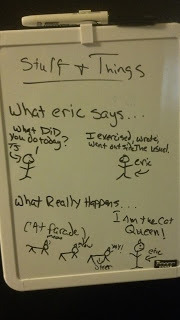 Stuff & Things
What eric says...
What DID
you do today?
I exercised, wrote,
went outside. The usual.
eric
What Really Happens...
I am the Cat
Queen!
Cat Parade!